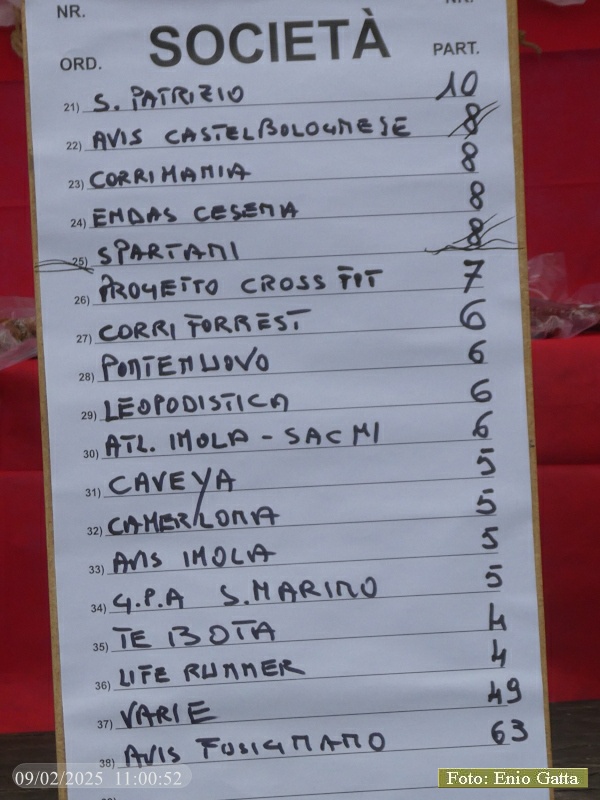 NR. NR.
ORD. SOCIETÀ PART.
21) S. PATRIZIO 10
22) AVIS CASTELBOLOGNESE 8
23) CORRIMANIA 8
24) ENDAS CESENA 8
25) SPARTANI 8
26) PROGETTO CROSS FIT 7
27) CORRI FORREST 6
28) PONTENUOVO 6
29) LEOPODISTICA 6
30) ATL. IMOLA - SACMI 6
31) CAVEYA 5
32) CAMERLONA 5
33) AVIS IMOLA 5
34) G.P.A S. MARINO 5
35) TE BOTA 4
36) LIFE RUNNER 4
37) VARIE 49
38) AVIS FUSIGNANO 63
09/02/2025 11:00:52
Foto: Enio Gatta